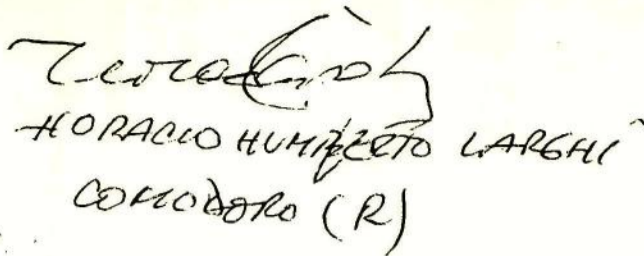 HORACIO HUMBERTO LARGHI
COMODORO (R)